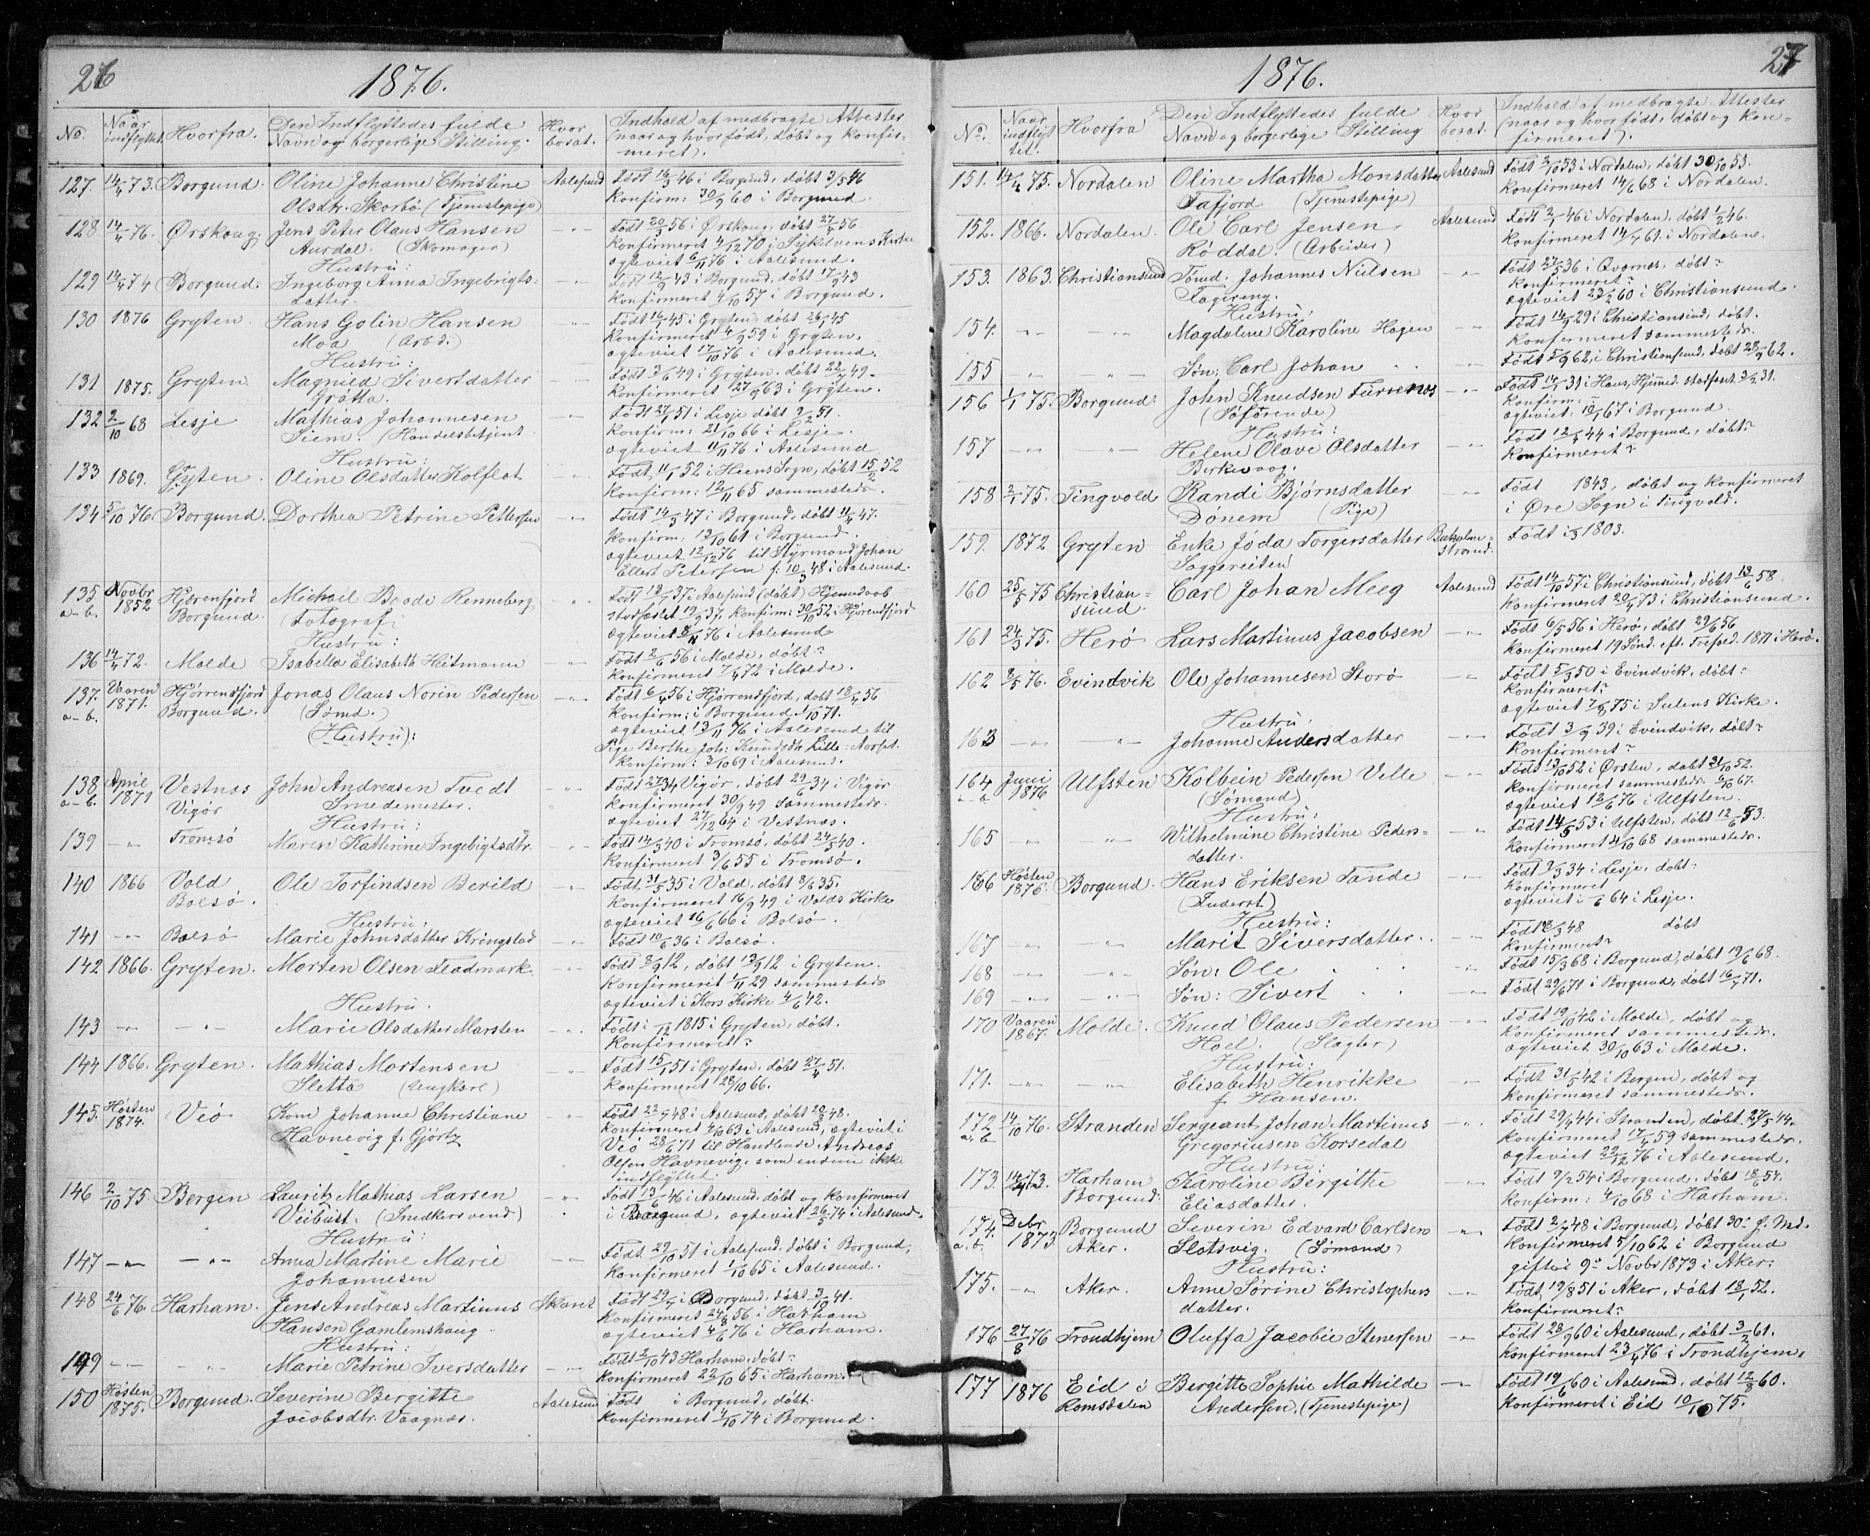 26
1876.
No.
Naar indflyttet
Hvorfra.
Den Indflyttedes fulde Navn og borgerlige Stilling.
Hvor bosat.
Indhold af medbragte Attester (naar og hvor født, døbt og konfirmeret).
127. 14/4 73. Borgund. Oline Johanne Christine Aalesund Født 16/3 46 i Borgund, døbt 3/5 46
Olsdtr. Skorbø (Tjenestepige) Konfirm: 30/9 60 i Borgund.
128 14/4 76. Ørskoug. Jens Peter Olaus Hansen -"- Født 20/3 56 i Ørskoug, døbt 27/4 56
Aurdal. (Skomager) Konfirmeret 4/12 70 i Sykelvens Kirke
ægteviet 6/11 76 i Aalesund.
Hustru:
129 14/4 74 Borgund. Ingeborg Anna Ingebrigts- -"- Født 12/9 43 i Borgund, døbt 17/9 43
datter. Konfirmeret 4/10 57 i Borgund.
130 1876 Gryten. Hans Golin Hansen -"- Født 16/1 45 i Gryten, døbt 26/1 45
Moa (Arbd.) Konfirmeret 4/9 59 i Gryten,
ægteviet 17/10 76 i Aalesund.
Hustru:
131 1875. Gryten Magnild Sivertdatter -"- Født 3/6 49 i Gryten, døbt 22/7 49.
Grøtta. Konfirmeret 27/9 63 i Gryten.
132 2/10 68 Lesje Mathias Johannesen -"- Født 27/1 51 i Lesje døbt 9/2 51.
Siem. (Handelsbetjent. Konfirm: 21/10 66 i Lesje.
ægteviet 11/11 76 i Aalesund
Hustru:
133 1869. Gryten. Oline Olsdatter Kolflot -"- Født 11/1 52 i Heens Sogn, døbt 15/2 52
Konfirm: 12/11 65 sammesteds.
134 5/10 76. Borgund. Dorthea Petrine Pettersen -"- Født 14/3 47 i Borgund, døbt 11/4 47.
Konfirm: 13/10 61 i Borgund.
ægteviet 12/12 76 til Styrmand Johan
Ellert Petersen f: 10/3 48 i Aalesund.
135 a-b. Novbr 1852 Hjørenfjord Borgund. Michael Baade Renneberg -"-
(Fotograf) storfæstet 19/9 37. Konfirm: 30/10 52 i Hjørendfjord
ægteviet 9/11 76 i Aalesund
Hustru:
136 14/4 72. Molde Isabella Elisabeth Heitmann -"- Født 2/6 56 i Molde, døbt?
Konfirmeret 7/4 72 i Molde.
137. a-b. Vaaren 1871. Hjørrendfjord Borgund. Jonas Olaus Norin Pedersen -"- Født 6/4 56 i Hjørrendfjord, døbt 18/4 56
(Sømd.) Konfirm: i Borgund 1/10 71.
ægteviet 13/11 76 i Aalesund til
(Hustru): Pige Berthe Joh: Knudsdtr Lille-Aarset.
Konfirm: 3/10 69 i Aalesund.
138 a-b. April 1871 Vestnæs Vigør John Andreasen Tvedt -"- Født 27/6 34 Vigør, døbt 29/6 34 i Vigør
Smedemester. Konfirmeret 30/9 49 sammesteds.
ægteviet 27/12 64 i Vestnæs.
Hustru:
139 -"- Tromsø Maren Kathrine Ingebrigtsdtr. -"- Født 14/5 40 i Tromsø, døbt 24/5 40.
Konfirmeret 3/6 55 i Tromsø.
140 1866 Vold Bolsø. Ole Torfindsen Berild -"- Født 31/5 35 i Vold, døbt 8/6 35.
Konfirmeret 16/9 49 i Volds Kirke
ægteviet 16/6 66 i Bolsø.
Hustru:
141 -"- Bolsø Marie Johnsdatter Kringstad -"- Født 10/6 36 i Bolsø.
142 1866. Gryten. Morten Olsen Fladmark. -"- Født 8/9 12, døbt 13/9 12 i Gryten.
Konfirmeret 1/11 29 sammesteds
ægteviet i Kors Kirke 4/6 42.
Hustru.
143 -"- -"- Marie Olsdatter Marsten -"- Født i /12 1815 i Gryten, døbt.
Konfirmeret?
144 1866. Gryten. Mathias Mortensen -"- Født 15/1 51 i Gryten, døbt 27/4 51.
Sletta (Ungkarl) Konfirmeret 28/10 66.
145. Høsten 1874. Veø Kone Johanne Christiane -"- Født 22/7 48 i Aalesund, døbt 20/8 48.
Havnevig f. Gjørtz Konfirmeret 4/10 63 i Aalesund, ægteviet i
Veø 28/6 71 til Handlende Andreas
Olsen Havnevig, som endnu ikke
indflyttet.
146 2/10 75 Bergen Lauritz Mathias Larsen -"- Født 13/6 46 i Aalesund, døbt og konfirmeret
Veibust. (Snedkersvend) i Borgund, ægteviet 26/5 74 i Aalesund.
Hustru:
147 -"- -"- Anna Martine Marie Født 29/10 51 i Aalesund, døbt i Borgund,
Johannesen Konfirmeret 1/10 65 i Aalesund.
148 24/6 76 Harham. Jens Andreas Martinus Født 29/7 i Borgund, døbt 3/10 41.
Hansen Gamlemshaug. Konfirmeret 24/8 56 i Harham
ægteviet 4/6 76 i Harham.
Hustru:
149 -"- -"- Marie Petrine Iversdatter -"- Født 2/10 43 Harham, døbt?
Konfirmeret 22/10 65 i Harham.
150 Høsten 1875. Borgund. Severine Bergitte Aalesund Født i Borgund, døbt
Jacobsdtr. Vaagnæs. Konfirmeret 4/10 74 i Borgund.
27
1876.
No.
Naar indflyttet.
Hvorfra
Den Indflyttedes fulde Navn og borgerlige Stilling
Hvor bosat.
Indhold af medbragte Attester (naar og hvor født, døbt og konfirmeret).
151. 14/4 75. Nordalen Oline Martha Monsdatter Aalesund Født 2/10 53 i Nordalen, døbt 30/10 53.
Tafjord (Tjenestepige) Konfirmeret 14/6 68 i Nordalen.
152. 1866. Nordalen. Ole Carl Jensen Aalesund Født 2/1 46 i Nordalen, døbt 1/2 46.
Røddal. (Arbeider) Konfirmeret 14/7 61 i Nordalen.
153. 1863. Christiansund Tømd. Johannes Nielsen -"- Født 27/5 36 i Qvernes, døbt?
Fagereng. Konfirmeret?
ægteviet 23/2 60 i Christiansund.
Hustru:
154. -"- -"- Magdalene Karoline Hagen -"- Født 14/9 29 i Christiansund, døbt.
Konfirmeret sammesteds.
155 -"- Søn: Carl Johan Født 5/9 62 i Christiansund, døbt 28/9 62.
156 1/1 75. Borgund. John Knudsen Furenæs -"-
(Søførende) Konfirm:
ægteviet: 18/6 67 i Borgund.
Hustru:
157 -"- -"- Helene Olave Olsdatter -"- Født 12/3 44 i Borgund, døbt?
Birkevaag. Konfirmeret?
158 2/1 75. Tingvold Randi Bjørnsdatter -"- Født 1843, døbt og konfirmeret
Dønem (Pige) i Øre Sogn i Tingvold.
159. 1872 Gryten Enke Jøda Torgersdatter Født 1/3 1803.
Soggereiten
160 25/5 75 Christiansund. Carl Johan Meeg Aalesund Født 14/10 57 i Christiansund, døbt 13/6 58.
Konfirmeret 20/4 73 i Christiansund.
161 24/3 75. Herø Lars Martinus Jacobsen -"- Født 6/5 56 i Herø, døbt 29/6 56
Konfirmeret 19 Sønd. eft. Trefold. 1871 i Herø.
162 2/5 76. Evindvik Ole Johannesen Storø -"- Født 5/3 50 i Evindvik, døbt?
Konfirmeret?
ægteviet 7/8 75 i Sulens Kirke.
Hustru:
163 -"- -"- Johanne Andersdatter -"- Født 3/9 39 i Evindvik, døbt?
Konfirmeret?
164 a-b Juni 1876 Ulfsten Kolbein Pedersen Velle -"- Født 13/10 52 i Ørsten, døbt 31/10 52.
(Sømand) Konfirmeret sammesteds 6/10 67.
ægteviet 12/6 76 i Ulfsten.
Hustru:
165 -"- -"- Wilhelmine Christine Peders- -"- Født 14/5 53 i Ulfsten, døbt 12/6 53.
datter. Konfirmeret 4/10 68 sammesteds.
166 Høsten 1876. Borgund. Hans Eriksen Tande -"- Født 9/3 34 i Lesje, døbt
(Inderst) Konfirmeret
ægteviet 1/6 64 i Lesje.
Hustru:
167 -"- -"- Marit Siversdatter. -"- Født 18/3 48 døbt
Konfirmeret?
168 -"- -"- Søn: Ole -"- Født 15/3 68 i Borgund, døbt 19/6 68.
169 -"- -"- Søn: Sivert -"- Født 29/6 71 i Borgund, døbt 16/7 71.
170 Vaaren 1867. Molde. Knud Olaus Pedersen -"- Født 19/10 42 i Molde, døbt og
Hoel. (Slagter) Konfirmeret sammesteds.
ægteviet 30/10 63 i Molde.
Hustru:
171. -"- -"- Elisabeth Henrikke -"- Født 31/5 42 i Bergen, døbt og
f. Hansen. Konfirmeret sammesteds.
172 a, b 14/10 76. Stranden Sergeant Johan Martinus -"- Født 29/4 44 i Stranden, døbt 27/5 44.
Gregoriusen Korsedal Konfirmeret 17/4 59 sammesteds.
ægteviet 29/12 76 i Aalesund.
Hustru:
173. 14/4 73. Harham Borgund: Karoline Bergithe -"- Født 9/2 54 i Borgund, døbt 18/6 54.
Eliasdatter. Konfirm: 4/10 68 i Harham.
174. a, b. Debr. 1873 Borgund Aker. Severin Edvard Carlsen -"- Født 2/7 48 i Borgund, døbt 30. f. Md.
Slotsvig. (Sømand) Konfirmeret 5/10 62 i Borgund
gifte i 9de Novbr 1873 i Aker.
Hustru:
175. -"- Aker. Anne Sørine Christophers -"- Født 19/8 51 i Aker, døbt 18/1 52.
datter. Konfirmeret?
176 27/8 76 Trondhjem Oluffa Jacobie Stenersen -"- Født 28/9 60 i Aalesund, døbt 3/2 61.
Konfirmeret 23/4 76 i Trondhjem.
177 1876 Eid i Romsdalen Bergitte Sophie Mathilde -"- Født 19/6 60 i Aalesund, døbt 12/8 60.
Andersen. (Tjenestepige) Konfirmeret i Eid 10/10 75.